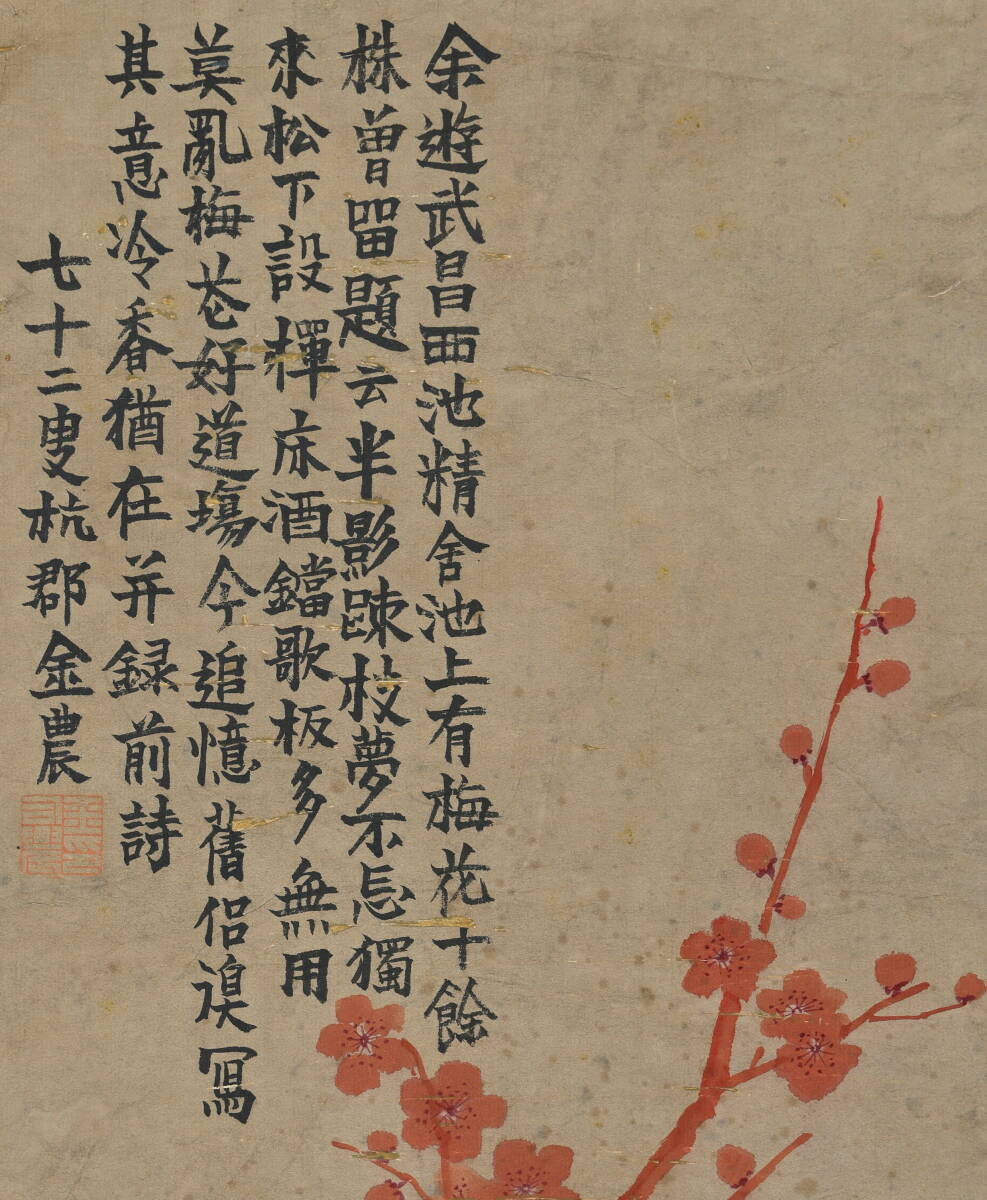 余遊武昌西池精舍池上有梅花十餘
株曾留題云半影踈枝夢不忘獨
來松下設禪床酒鐺歌板多無用
莫亂梅花好道塲今追憶舊侶謨寫
其意冷香猶在并録前詩
七十二叟杭郡金農